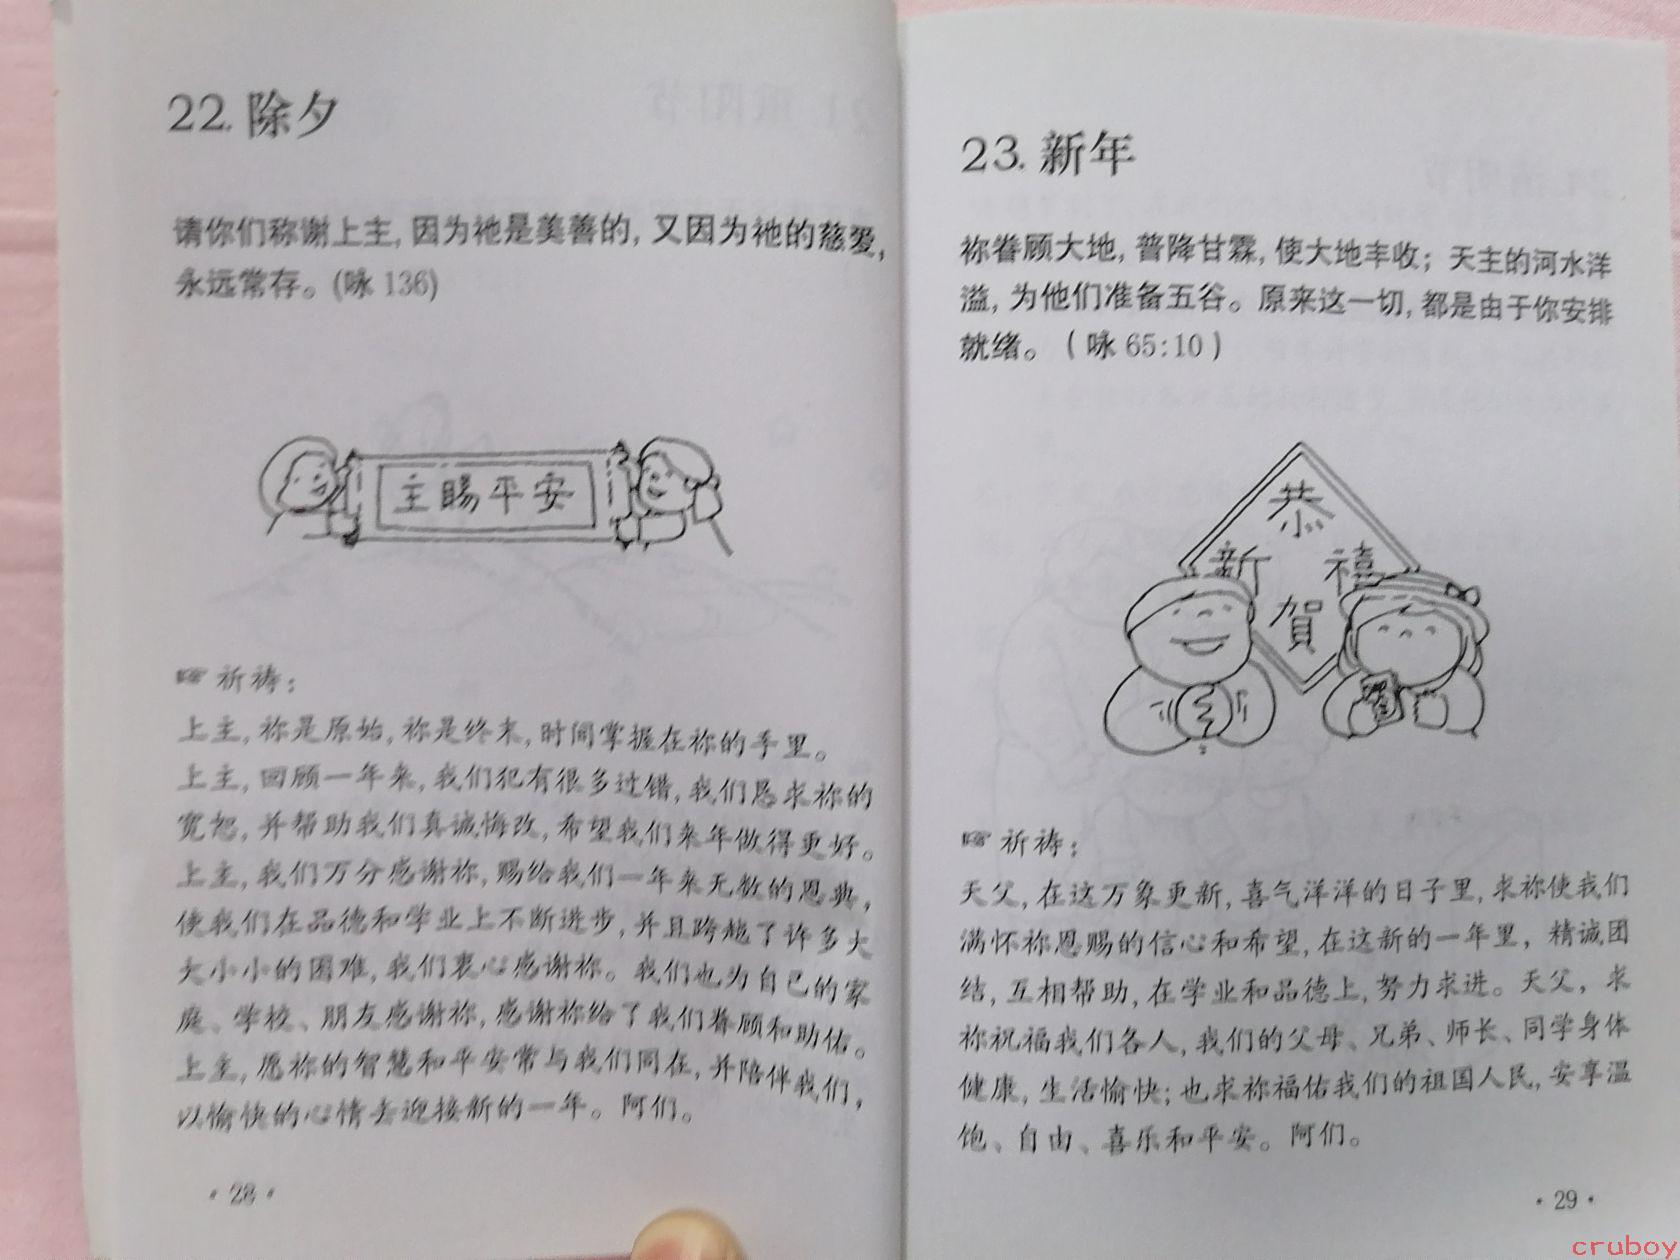 22. 除夕
请你们称谢上主, 因为祂是美善的, 又因为祂的慈爱,
永远常存。(咏 136)
主賜平安
祈祷:
上主, 祢是原始, 祢是终末, 时间掌握在祢的手里。
上主, 回顾一年来, 我们犯有很多过错, 我们恳求祢的
宽恕, 并帮助我们真诚悔改, 希望我们来年做得更好。
上主, 我们万分感谢祢, 赐给我们一年来无数的恩典,
使我们在品德和学业上不断进步, 并且跨越了许多大
大小小的困难, 我们衷心感谢祢。我们也为自己的家
庭、学校、朋友感谢祢, 感谢祢给了我们眷顾和助佑。
上主, 愿祢的智慧和平安常与我们同在, 并陪伴我们,
以愉快的心情去迎接新的一年。阿们。
· 28 ·
23. 新年
祢眷顾大地, 普降甘霖, 使大地丰收; 天主的河水洋
溢, 为他们准备五谷。原来这一切, 都是由于你安排
就绪。( 咏 65:10 )
恭
新 禧
賀
祈祷:
天父, 在这万象更新, 喜气洋洋的日子里, 求祢使我们
满怀祢恩赐的信心和希望, 在这新的一年里, 精诚团
结, 互相帮助, 在学业和品德上, 努力求进。天父, 求
祢祝福我们各人, 我们的父母、兄弟、师长、同学身体
健康, 生活愉快; 也求祢福佑我们的祖国人民, 安享温
饱、自由、喜乐和平安。阿们。
· 29 ·
cruboy